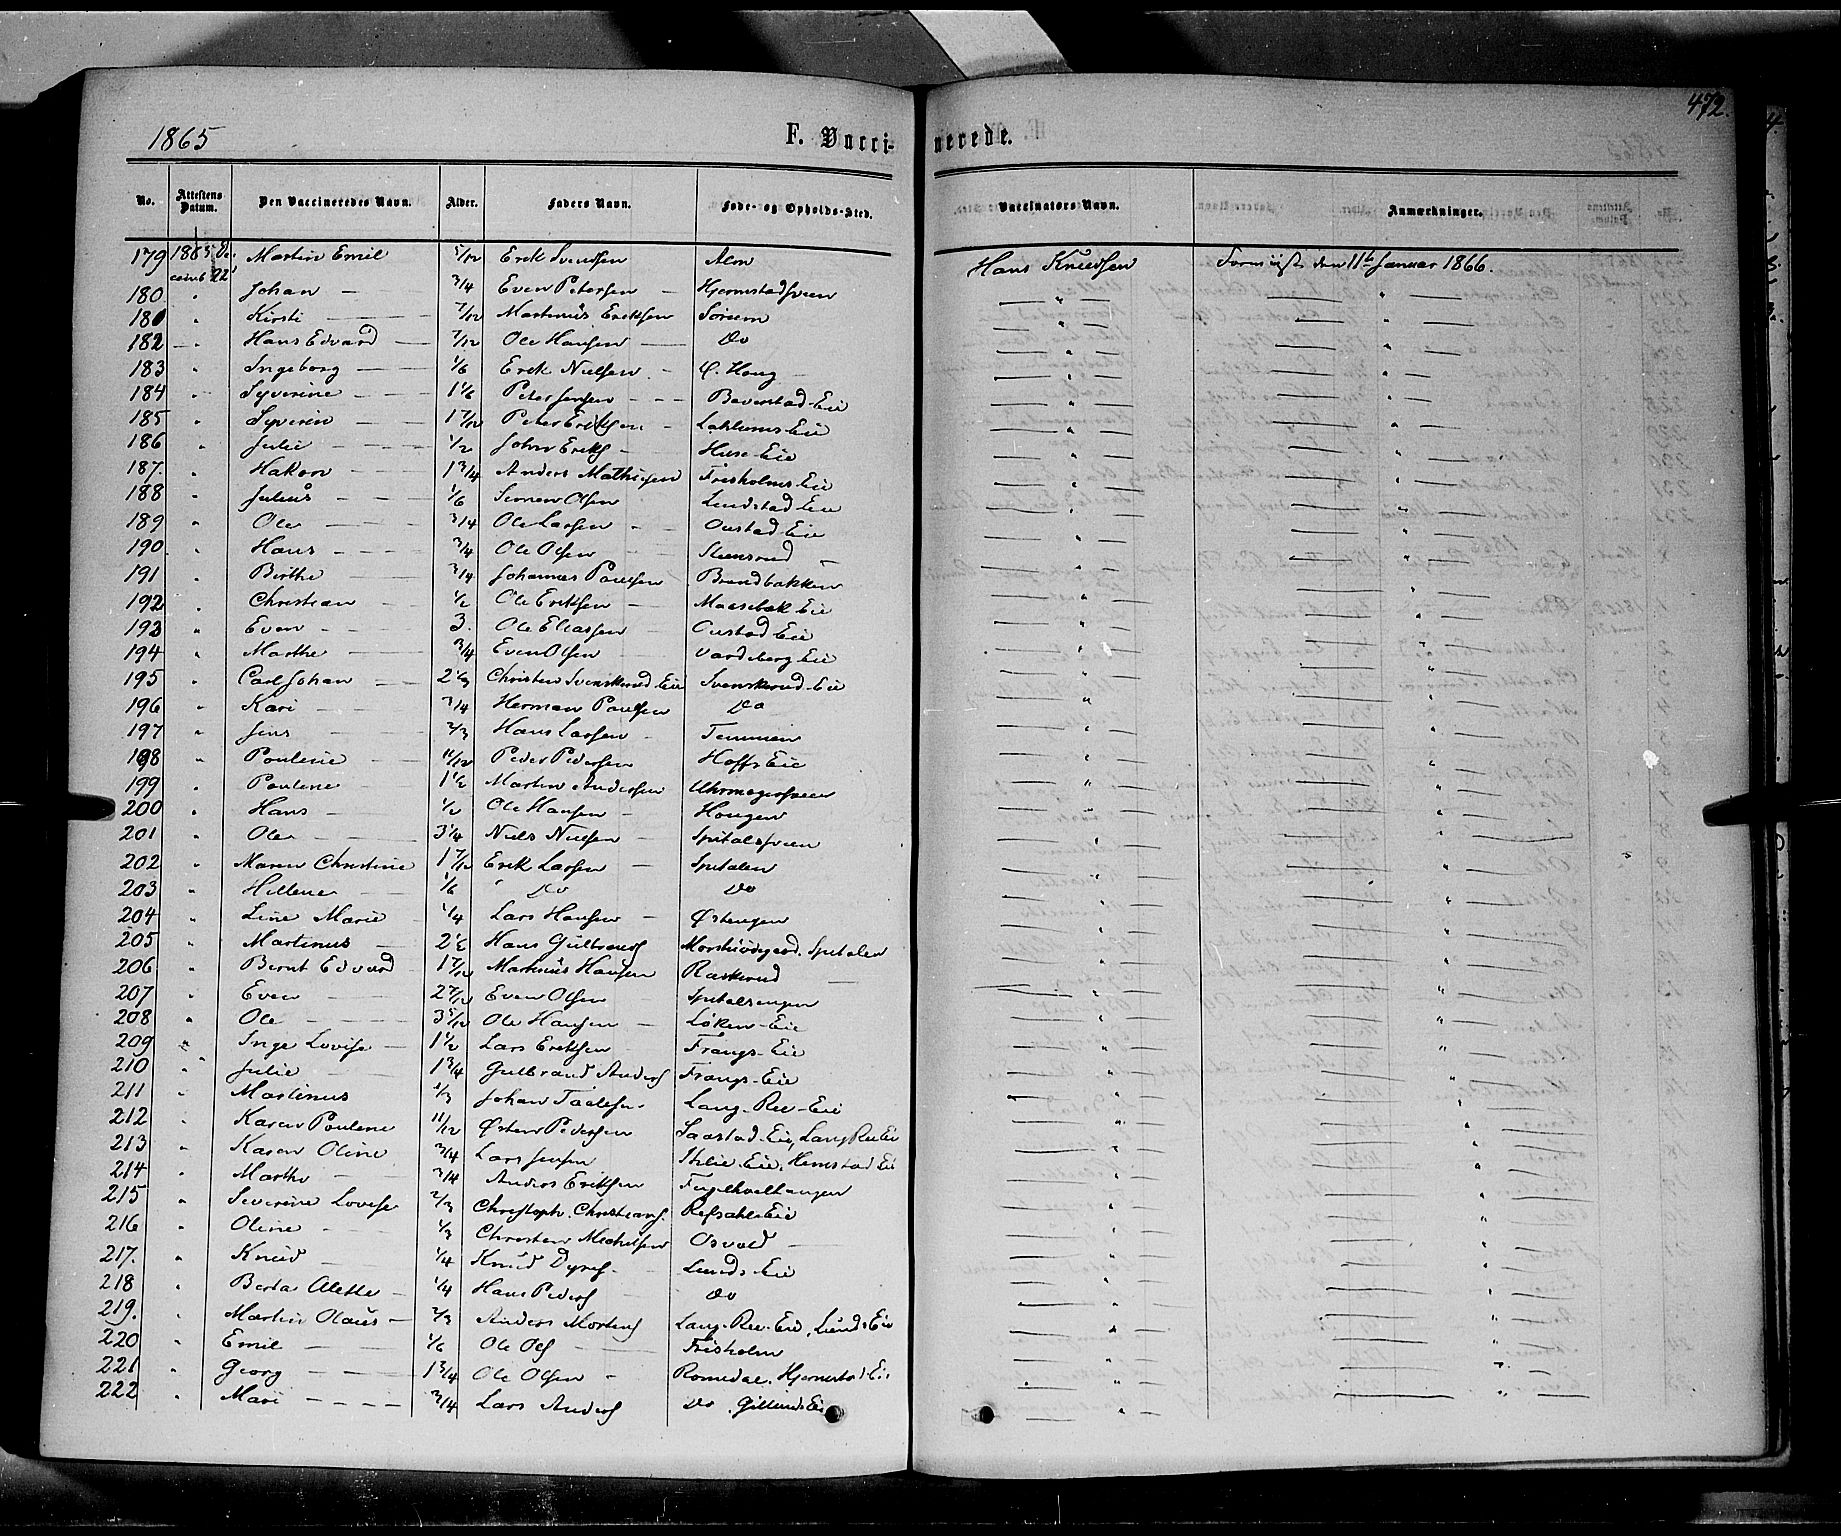 472.
1865 F. Vaccinerede.
No. Attestens Datum. Den Vaccineredes Navn. Alder. Faders Navn. Føde- og Opholds-Sted. Vaccinators Navn. Anmærkninger.
179 1865 De- Martin Emil 5/12 Erik Svendsen Alm Hans Knudsen den 11te Januar 1866.
cemb 22
180 " Johan 3/4 Even Petersen Hjemstadsveen
181 " Kirsti 7/12 Martinus Eriksen Sørum
182 " Hans Edvard 7/12 Ole Hansen Do
183 " Ingeborg 1/6 Erik Nielsen Ø. Houg
184 " Syverine 1 1/6 Peter Jensen Bævustad-Eie
185 " Syverin 1 7/12 Peter Eriksen Eie
186 " Julie 1/2 John Eriks Huse-Eie
187. " Hakon 1 3/4 Anders Mathisen Frisholms Eie
188 " Julius 1/6 Simen Olsen Lundstad Eie
189 " Ole 3/4 Ole Larsen Oustad Eie
190 " Hans 3/4 Ole Olsen Steensrud
191 " Birthe 3/4 Johannes Poulsen Brendbakken
192 " Christian 1/2 Ole Eriksen Maasebæk Eie
193 " Even 3. Ole Eliassen Oustad Eie
194 " Marthe 3/4 Even Olsen Vardeberg Eie
195 " Carl Johan 2 1/3 Christen Svenskerud Eie Svenskerud-Eie
196 " Kari 3/4 Herman Poulsen Do
197 " Jens 2/3 Hans Larsen Tommen
198 " Poulene 11/12 Peder Pedersen Hoffs Eie
199 " Poulene 1 1/2 Martin Andersen Uhrmagersveen
200 " Hans 1/2 Ole Hansen Hougen
201 " Ole 3 1/4 Niels Nielsen Spitalsveen
202 " Maren Christine 1 7/12 Erik Larsen Spitalen
203 " Hellene 1/6 " Do Do
204 " Line Marie 1/4 Lars Hansen Østengen
205 " Martinus 2 1/2 Hans Gulbrands Spitalen
206 " Bernt Edvard 1 7/12 Martinus Hansen Raskerud
207 " Even 2 7/12 Even Olsen Spitalsengen
208 " Ole 3 5/12 Ole Hansen Løken-Eie
209 " Inge Lovise 1 1/2 Lars Eriksen Frangs-Eie
210 " Julie 1 3/4 Gulbrand Anders Frangs-Eie
211 " Martinus 1/3 Johan Lang-Ree-Eie
212 " Karen Poulene 11/12 Østen Pedersen Saastad-Eie, Lang Ree Eie
213 " Karen Oline 3/4 Lars Jensen Ihlie-Eie, Hemstad Eie
214 " Marthe 3/4 Anders Eriksen Fuglhveltangen
215 " Severine Lovise 2/3 Christoph. Christians. Refsahl-Eie
216 " Oline 1/3 Christen Michelsen Osvold
217. " Knud 1/4 Knud Dyres Lunds-Eie
218 " Berta Alette 1/4 Hans Peders Do
219. " Martin Olaus 2/3 Anders Mortens Lang-Ree-Eie, Lunds Eie
220 " Emil 1/6 Ole Ols Frisholm
221 " Georg 1 3/4 Ole Olsen Romedal, Hjemstad Eie
222 " Mari 3/4 Lars Anders Do, Gillunds Eie